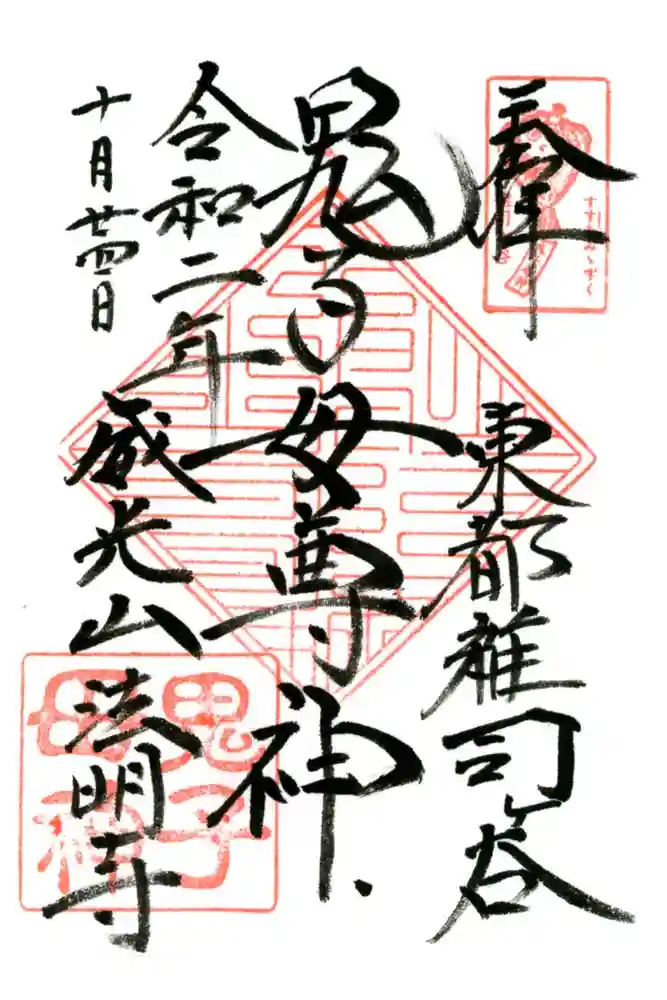 奉拝
すすきみゝずく
東都雑司ヶ谷
鬼子母尊神
令和二年
十月廿四日
威光山法明寺
鬼子母神